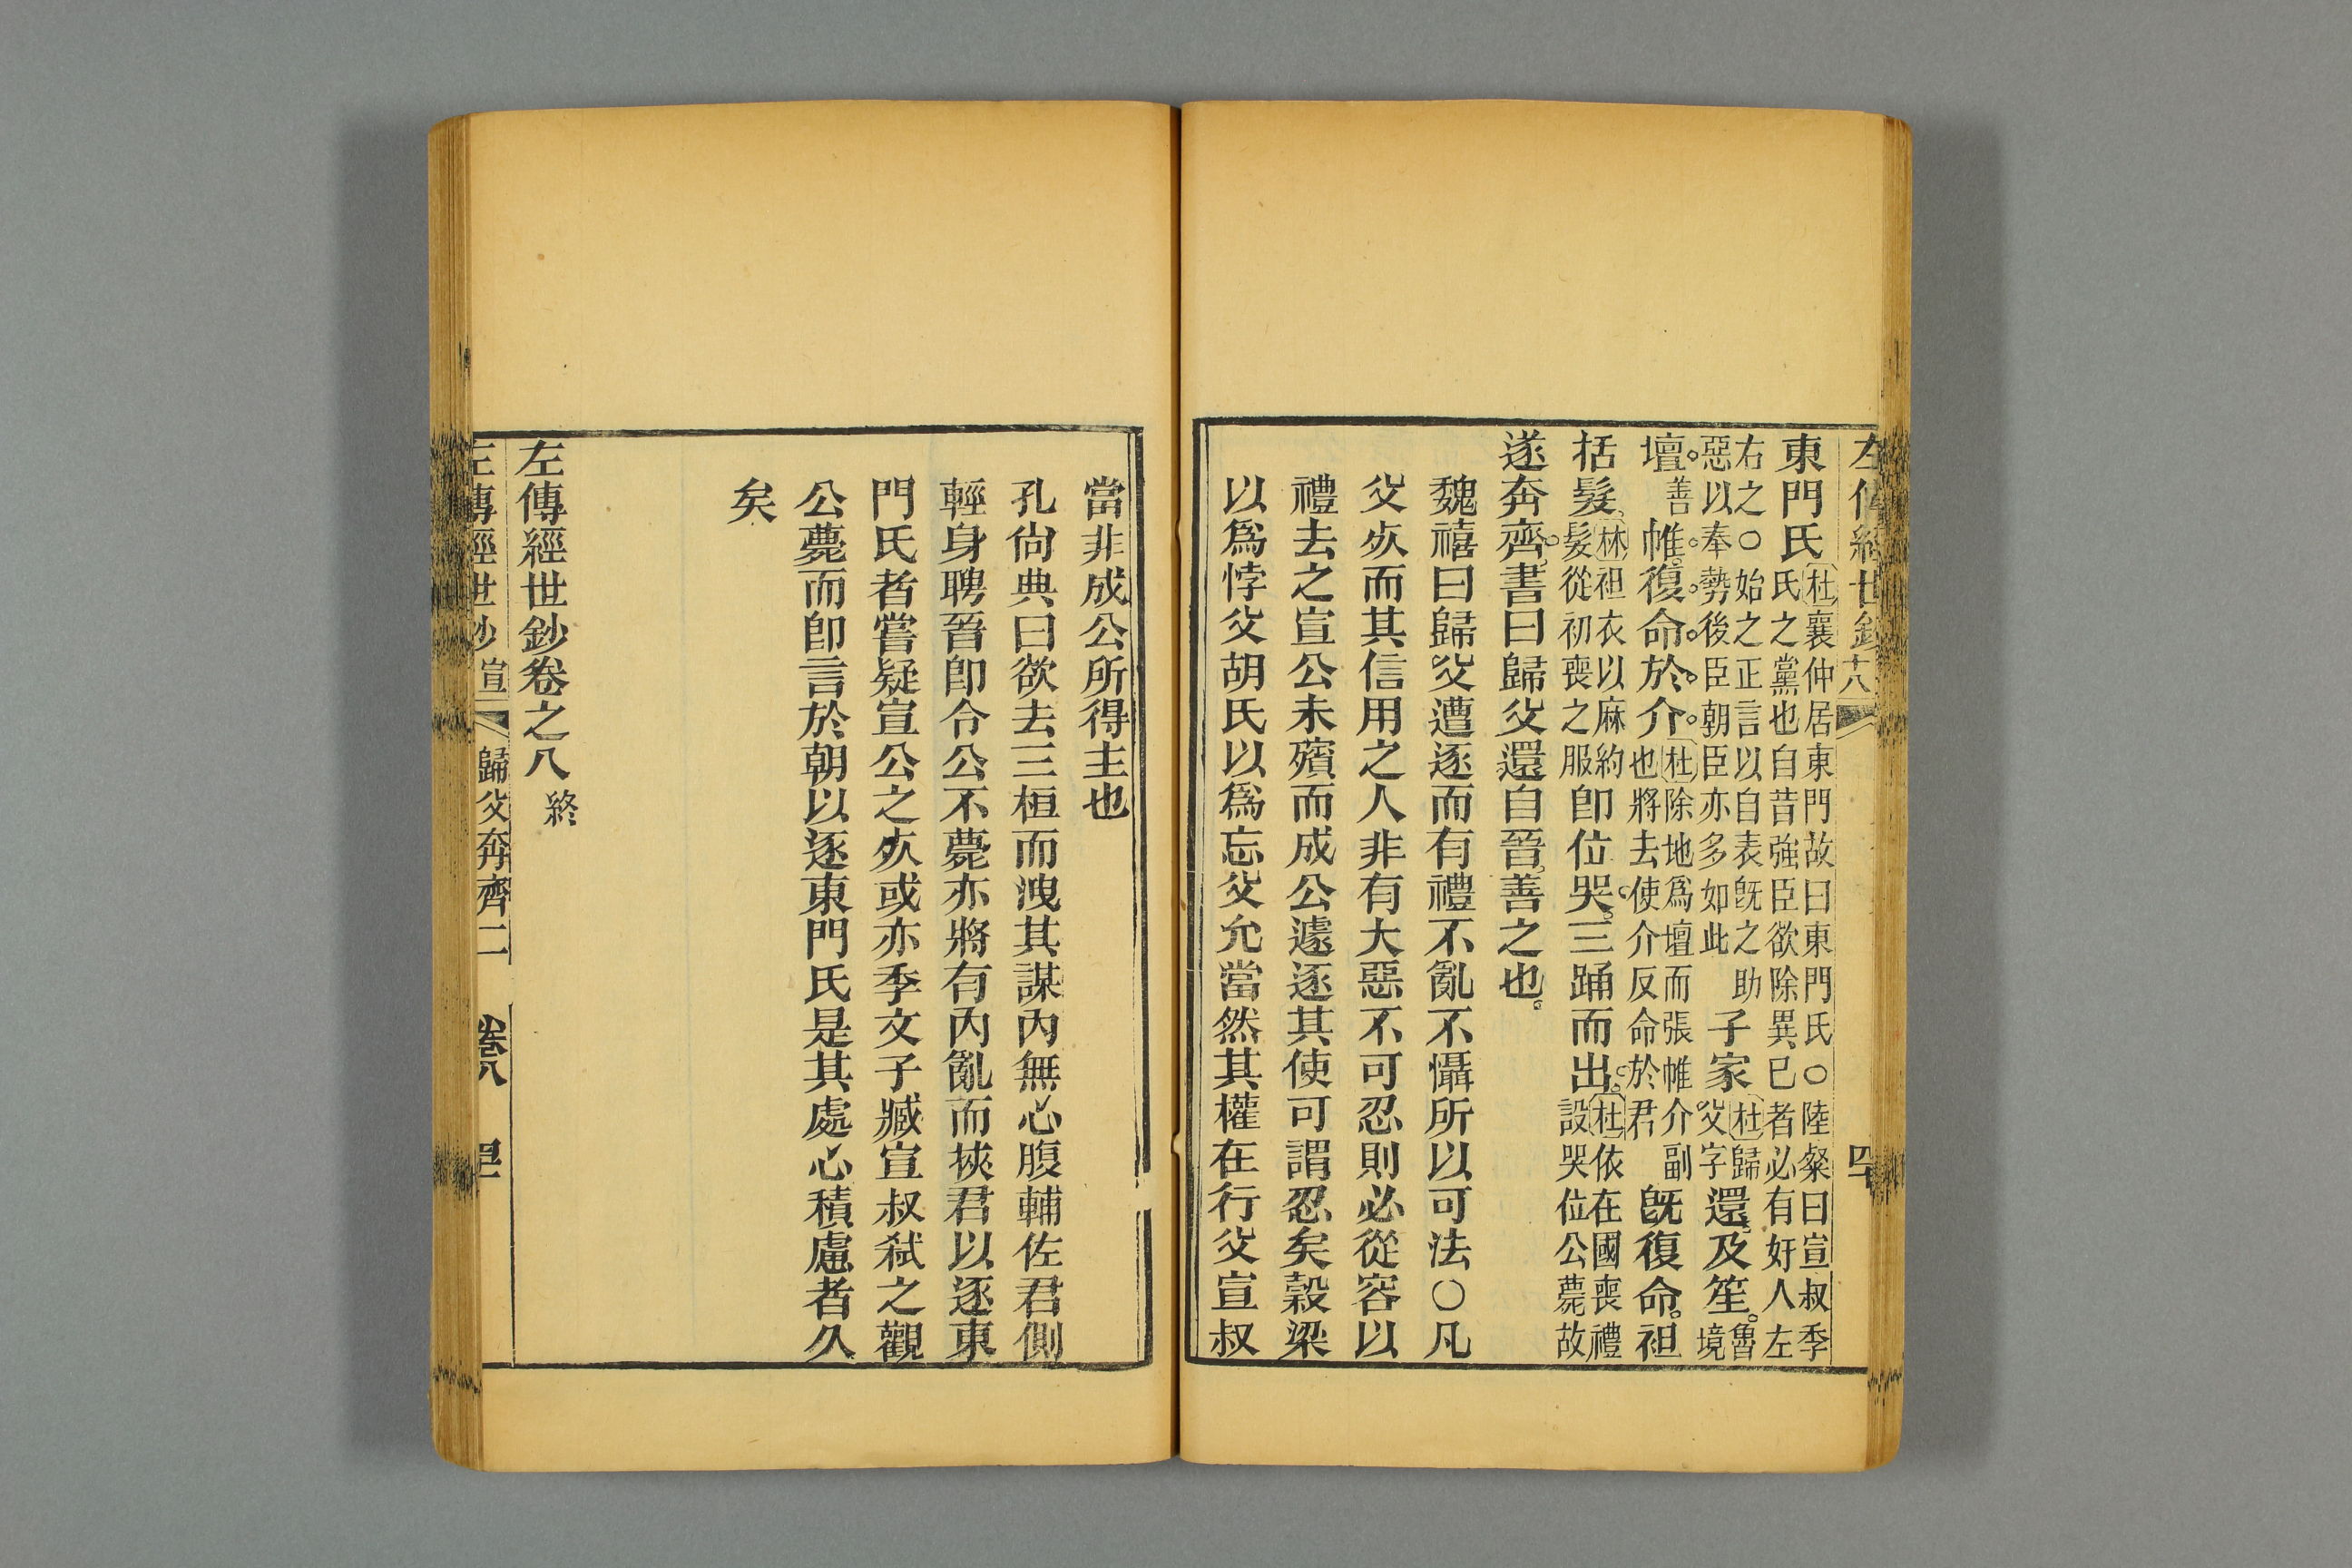 左傳經世鈔 十八 四十
東門氏杜襄仲居東門故曰東門氏○陸粲曰宣叔季氏之黨也自昔強臣欲除異已者必有好人左
右之○始之正言以自表旣之助惡以奉勢後臣朝臣亦多如此子家杜歸父字還及笙魯境
壇善帷復命於介杜除地爲壇而張帷介副也將去使介反命於君旣復命袒
括髮林袒衣以麻約髮從初喪之服卽位哭三踊而出杜依在國喪禮設哭位公薨故
遂奔齊書曰歸父還自晉善之也
魏禧曰歸父遭逐而有禮不亂不懾所以可法○凡
父死而其信用之人非有大惡不可忍則必從容以
禮去之宣公未殯而成公遽逐其使可謂忍矣穀梁
以爲悖父胡氏以爲忘父允當然其權在行父宣叔
當非成公所得主也
孔尙典曰欲去三桓而洩其謀內無心腹輔佐君側
輕身聘晉卽令公不薨亦將有內亂而挾君以逐東
門氏者嘗疑宣公之死或亦季文子臧宣叔弒之觀
公薨而卽言於朝以逐東門氏是其處心積慮者久
矣
左傳經世鈔卷之八終
左傳經世鈔 宣 歸父奔齊二 卷八